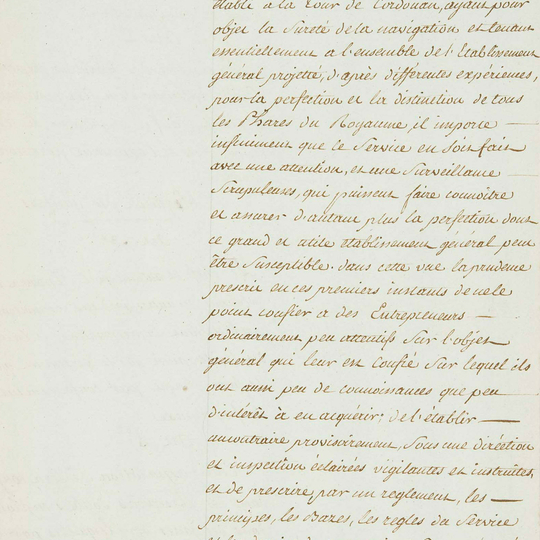 établé à la Tour de Cordouan, ayant pour
objet la Sureté de la navigation et tenant
essentiellement a l'ensemble de l'Etablissement
général projetté, d'après différentes expériences,
pour la perfection et la distinction de tous
les Phares du Royaume il importe —
infiniment que le Service en soit fait
avec une attention, et une Surveillance —
Scrupuleuses, qui puissent faire connoître
et assurer d'autant plus la perfection dont
ce grand et utile établissement général peut
être Susceptible. dans cette vue la prudence
prescrit en ces premiers instants de ne le
point confier a des Entrepreneurs —
ordinairement peu attentifs Sur l'objet
général qui leur est confié Sur lequel ils
ont aussi peu de connoissances que peu
d'intérêt à en acquérir; de l'établir —
aucontraire provisoirement, Sous une diréction
et inspection éclairées vigilantes et instruites,
et de prescrire, par un reglement, les —
principes, les Bazes, les regles du Service